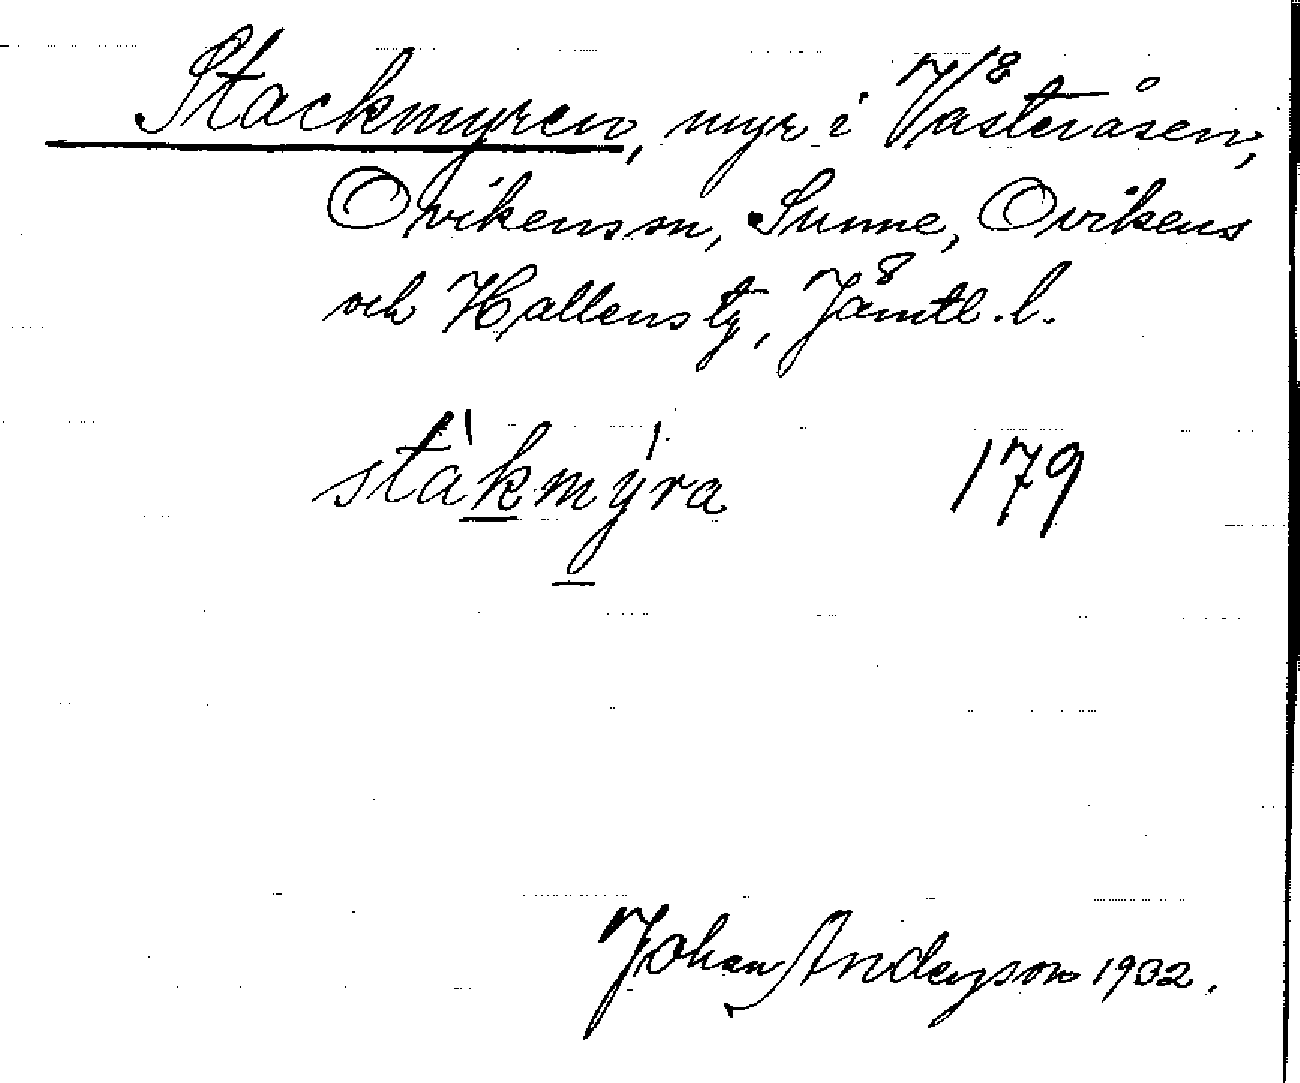 Stackmyren, myr i Västeråsen,
Ovikens sn, Sunne, Ovikens
och Hallens tg, Jämtl. l.
stàkmýra 179
Johan Anderson 1932.